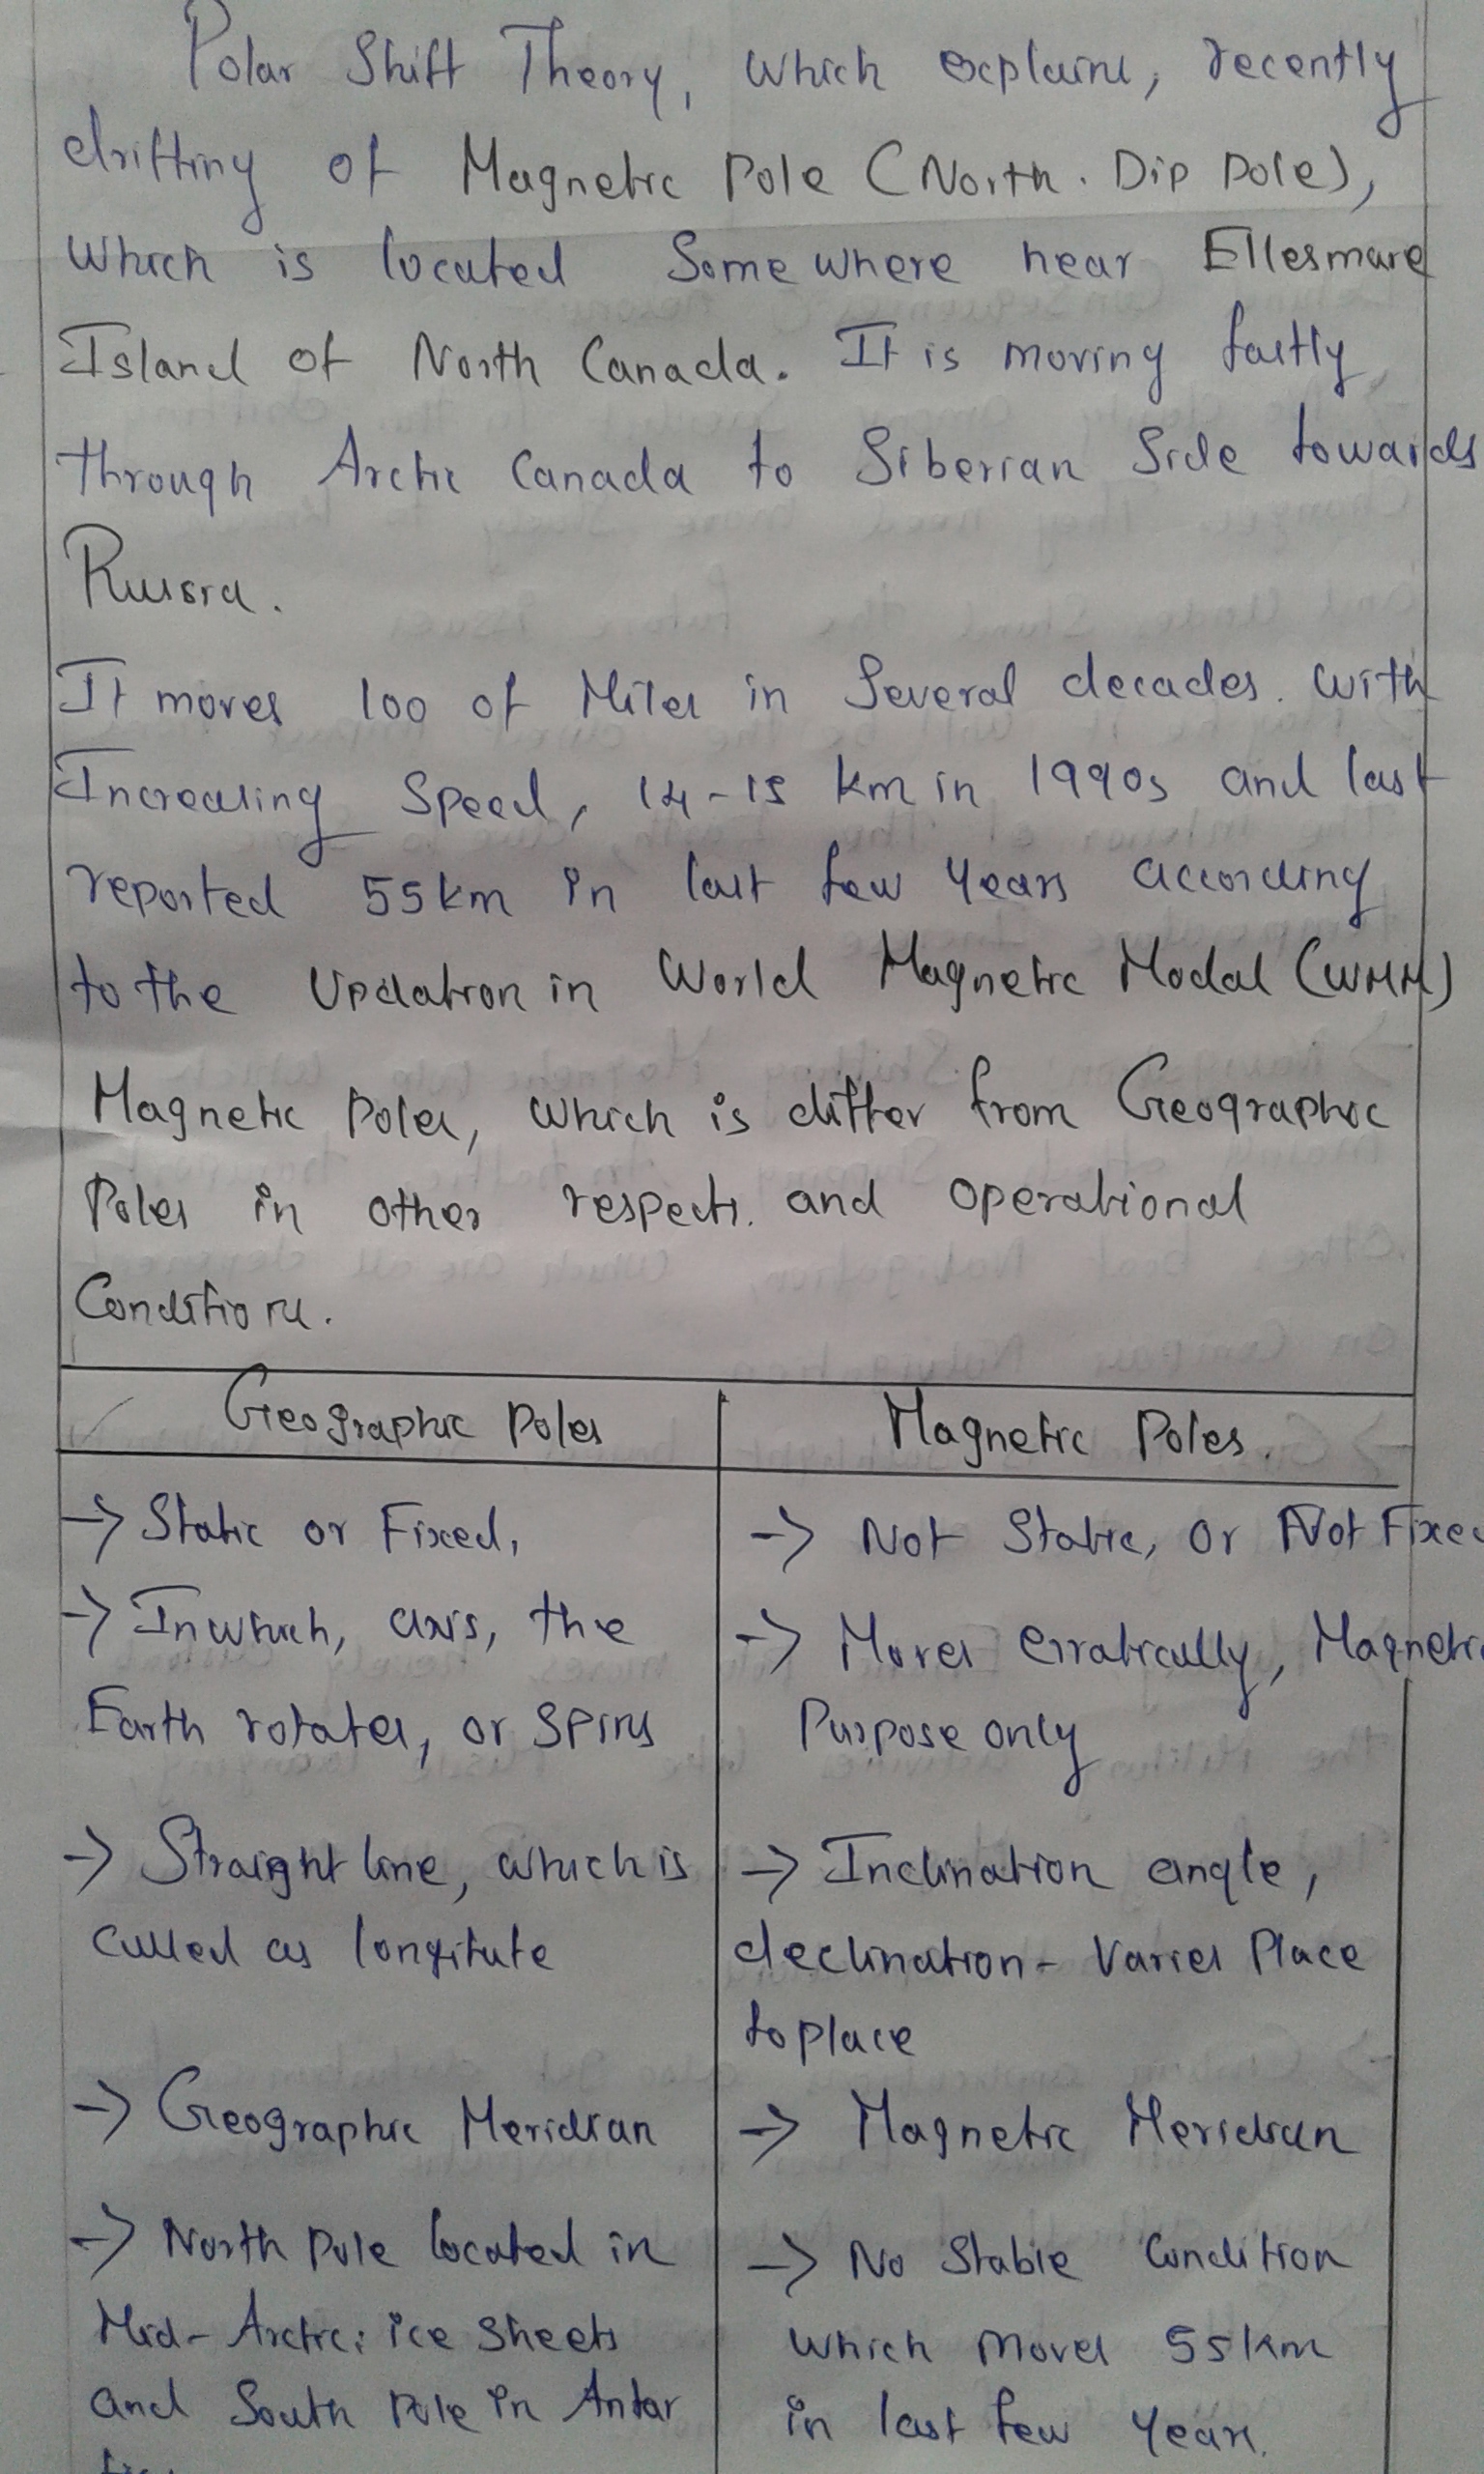 Polar Shift Theory, which explains, recently
drifting of Magnetic Pole (North. Dip Pole),
which is located Some where near Ellesmare
Island of North Canada. It is moving fastly
through Arctic Canada to Siberian Side towards
Russia.
It moves 100 of Miles in Several decades. with
Increasing Speed, 14-15 km in 1990s and last
reported 55km in last few years according
to the Updation in World Magnetic Modal (WMM)
Magnetic Poles, which is differ from Geographic
Poles in other respects. and operational
Conditions.
Geographic Poles
Magnetic Poles.
→ Static or Fixed,
→ Inwhich, axis, the
Earth rotates, or Spins
→ Straight line, which is
called as longitute
→ Geographic Meridian
→ North Pole located in
Mid-Arctic; ice sheets
and South Pole in Antar
→ Not Static, or Not Fixed
→ Moves erratically, Magnetic
Purpose only
→ Inclination angle,
declination- Varies Place
to place
→ Magnetic Meridian
→ No Stable Condition
which moves 55km
in last few years.